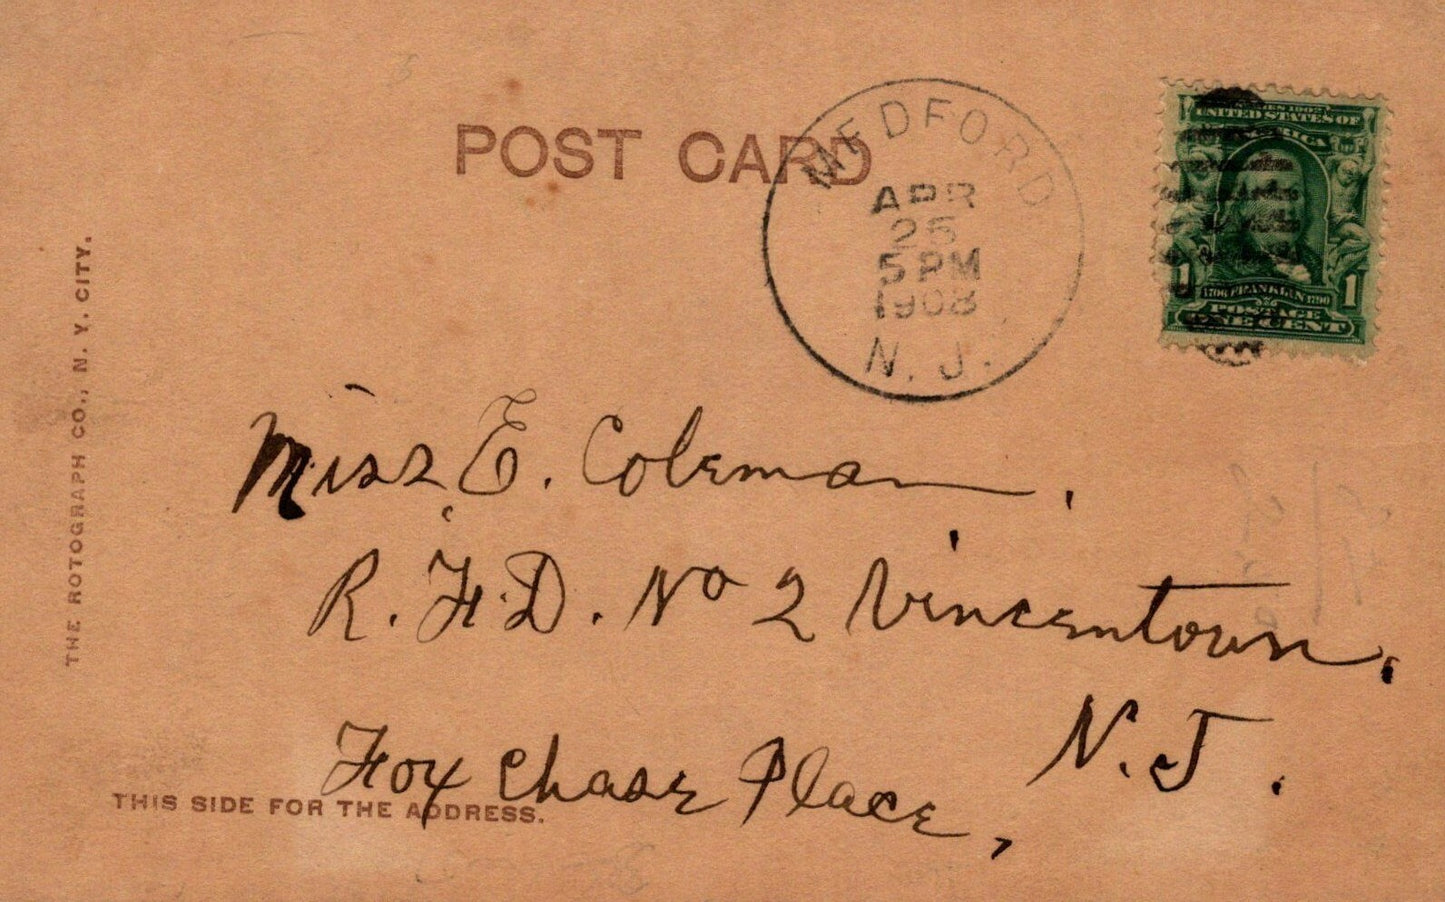 POST CARD
MEDFORD
APR
25
5 PM
1908
N. J.
SERIES 1902
UNITED STATES OF
AMERICA
1706 FRANKLIN 1790
1 1
POSTAGE
ONE CENT
THE ROTOGRAPH CO., N. Y. CITY.
Miss E. Coleman.
R. F. D. No 2 Vincentown.
N. J.
Fox Chase Place,
THIS SIDE FOR THE ADDRESS.